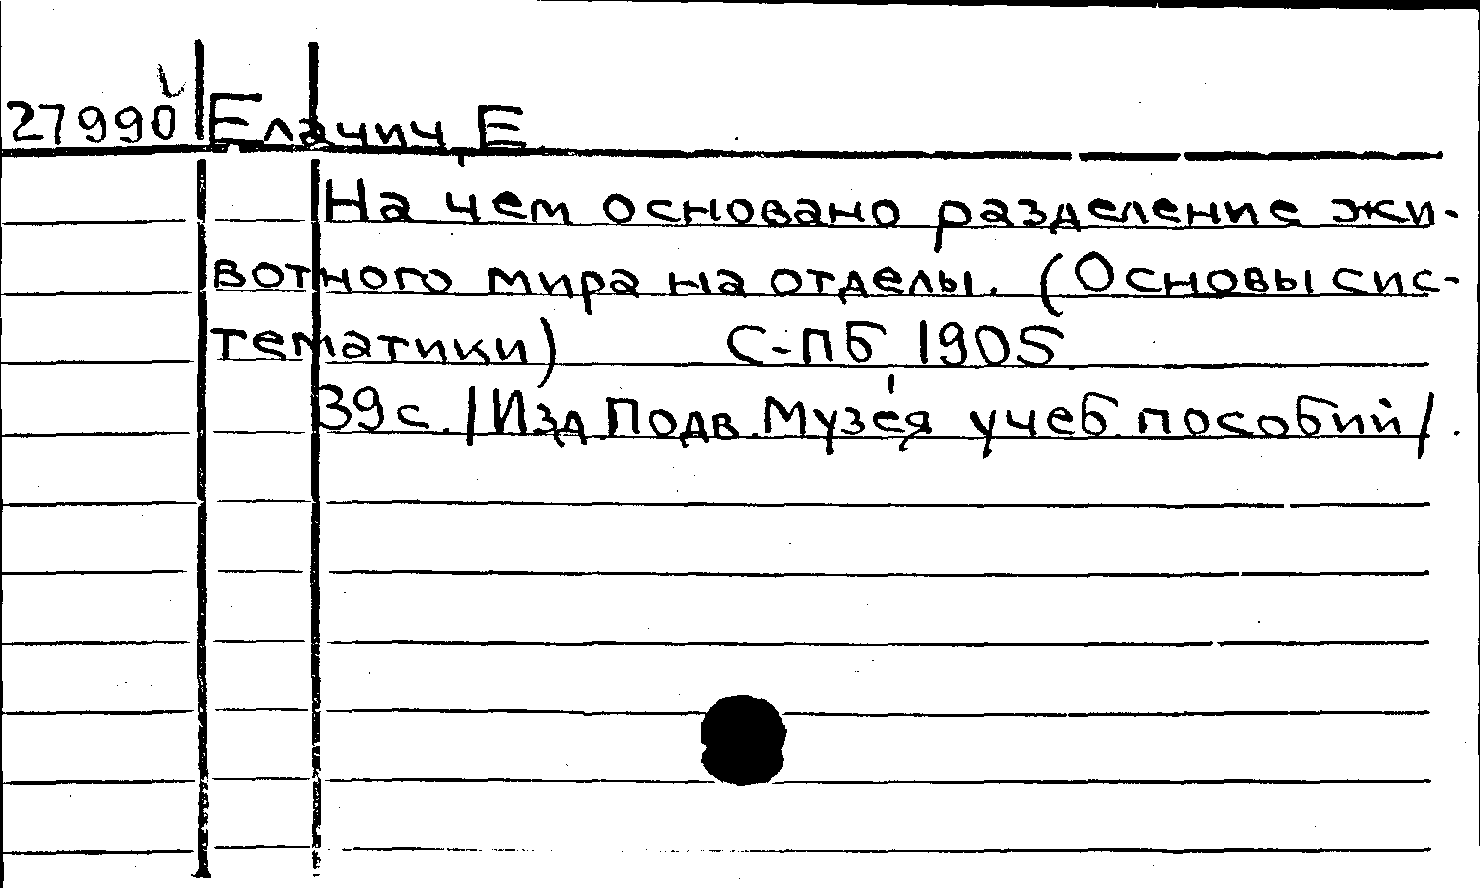 27990 Елачич, Е
На чем основано разделение жи-
вотного мира на отделы. (Основы сис-
тематики) С-ПБ 1905
39 с. /Изд. Подв. Музея учеб. пособий/.